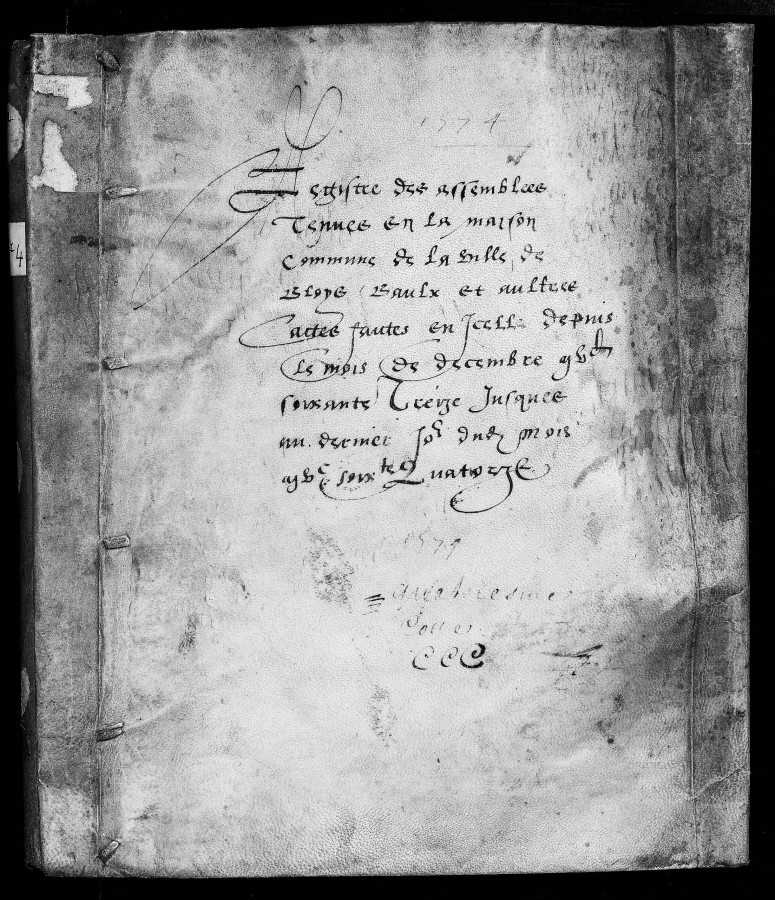 1574
Registre des assemblees
Tenues en la maison
Commune de la ville de
Bloys Baulx et aultres
actes faictes en Icelle depuis
le mois de decembre gvc
soixante Treize Jusques
au dernier Jor dud mois
gvc soixte Quatorze
1574
CCC